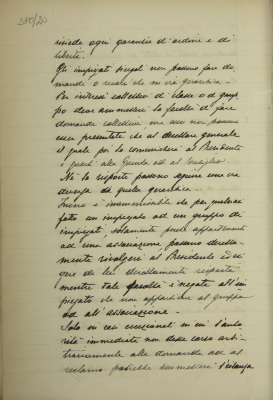 280/20
risiede ogni garanzia d'ordine e di
libertà.
Gli impiegati singoli non possono fare do-
mande o reali che in via gerarchica.-
Per interessi collettivi di classe o di grup-
po deve ammettersi la facoltà di fare
domande collettive ma esse non possono
essere presentate che al direttore generale
il quale poi le comunicherà al Presidente
e quest' alla Giunta ed al Consiglio.
Nè le risposte possono seguire una via
diversa di quella gerarchica.-
Invero è inammissibile che per qualsiasi
fatto un impiegato od un gruppo di
impiegati, solamente perchè appartenenti
ad una associazione, possano diretta-
mente rivolgersi al Presidente ed esi-
gere da lui direttamente risposte
mentre tale facoltà è negata all'im-
piegato che non appartiene al gruppo
od all'associazione.-
Solo in casi eccezionali in cui l'auto-
rità immediata non desse corso arbi-
trariamente alla domanda od al
reclamo potrebbe ammettersi l'istanza